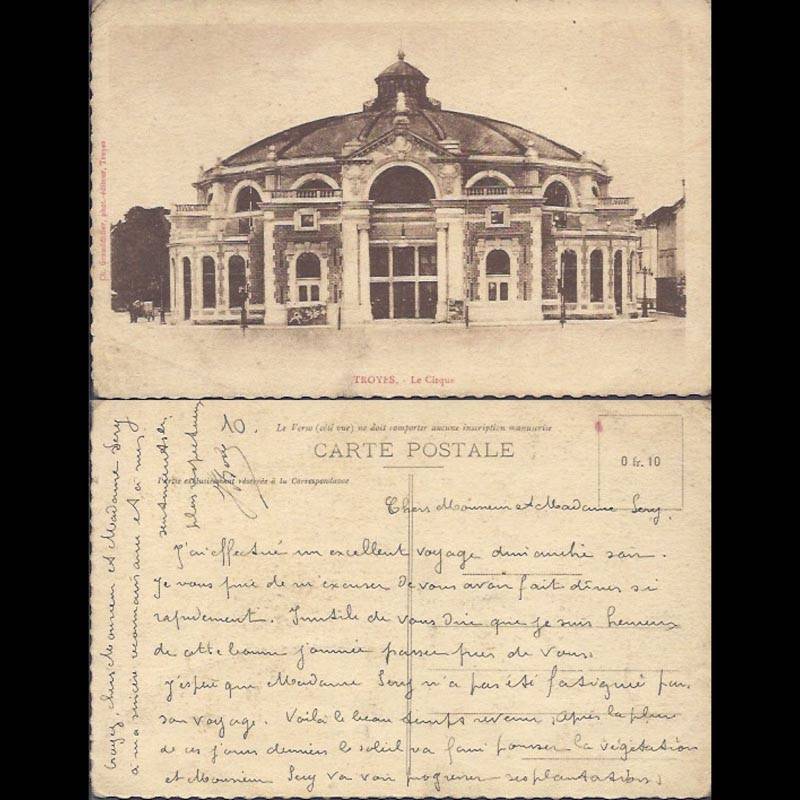 Ch. Grandidier, phot.-éditeur, Troyes
TROYES. - Le Cirque
10.
Le Verso (côté vue) ne doit comporter aucune inscription manuscrite
CARTE POSTALE
Partie exclusivement réservée à la Correspondance
0 fr. 10
Chers Monsieur et Madame Sery,
J'ai effectué un excellent voyage dimanche soir.
Je vous prie de m'excuser de vous avoir fait dîner si
rapidement. Inutile de vous dire que je suis heureux
de cette bonne journée passée près de vous.
J'espère que Madame Sery n'a pas été fatiguée par
son voyage. Voilà le beau temps revenu, après la pluie
de ces jours derniers le soleil va faire pousser la végétation
et Monsieur Sery va voir progresser ses plantations.
Croyez, chers Monsieur et Madame Sery
à ma sincère reconnaissance et à mes
sentiments les
plus respectueux